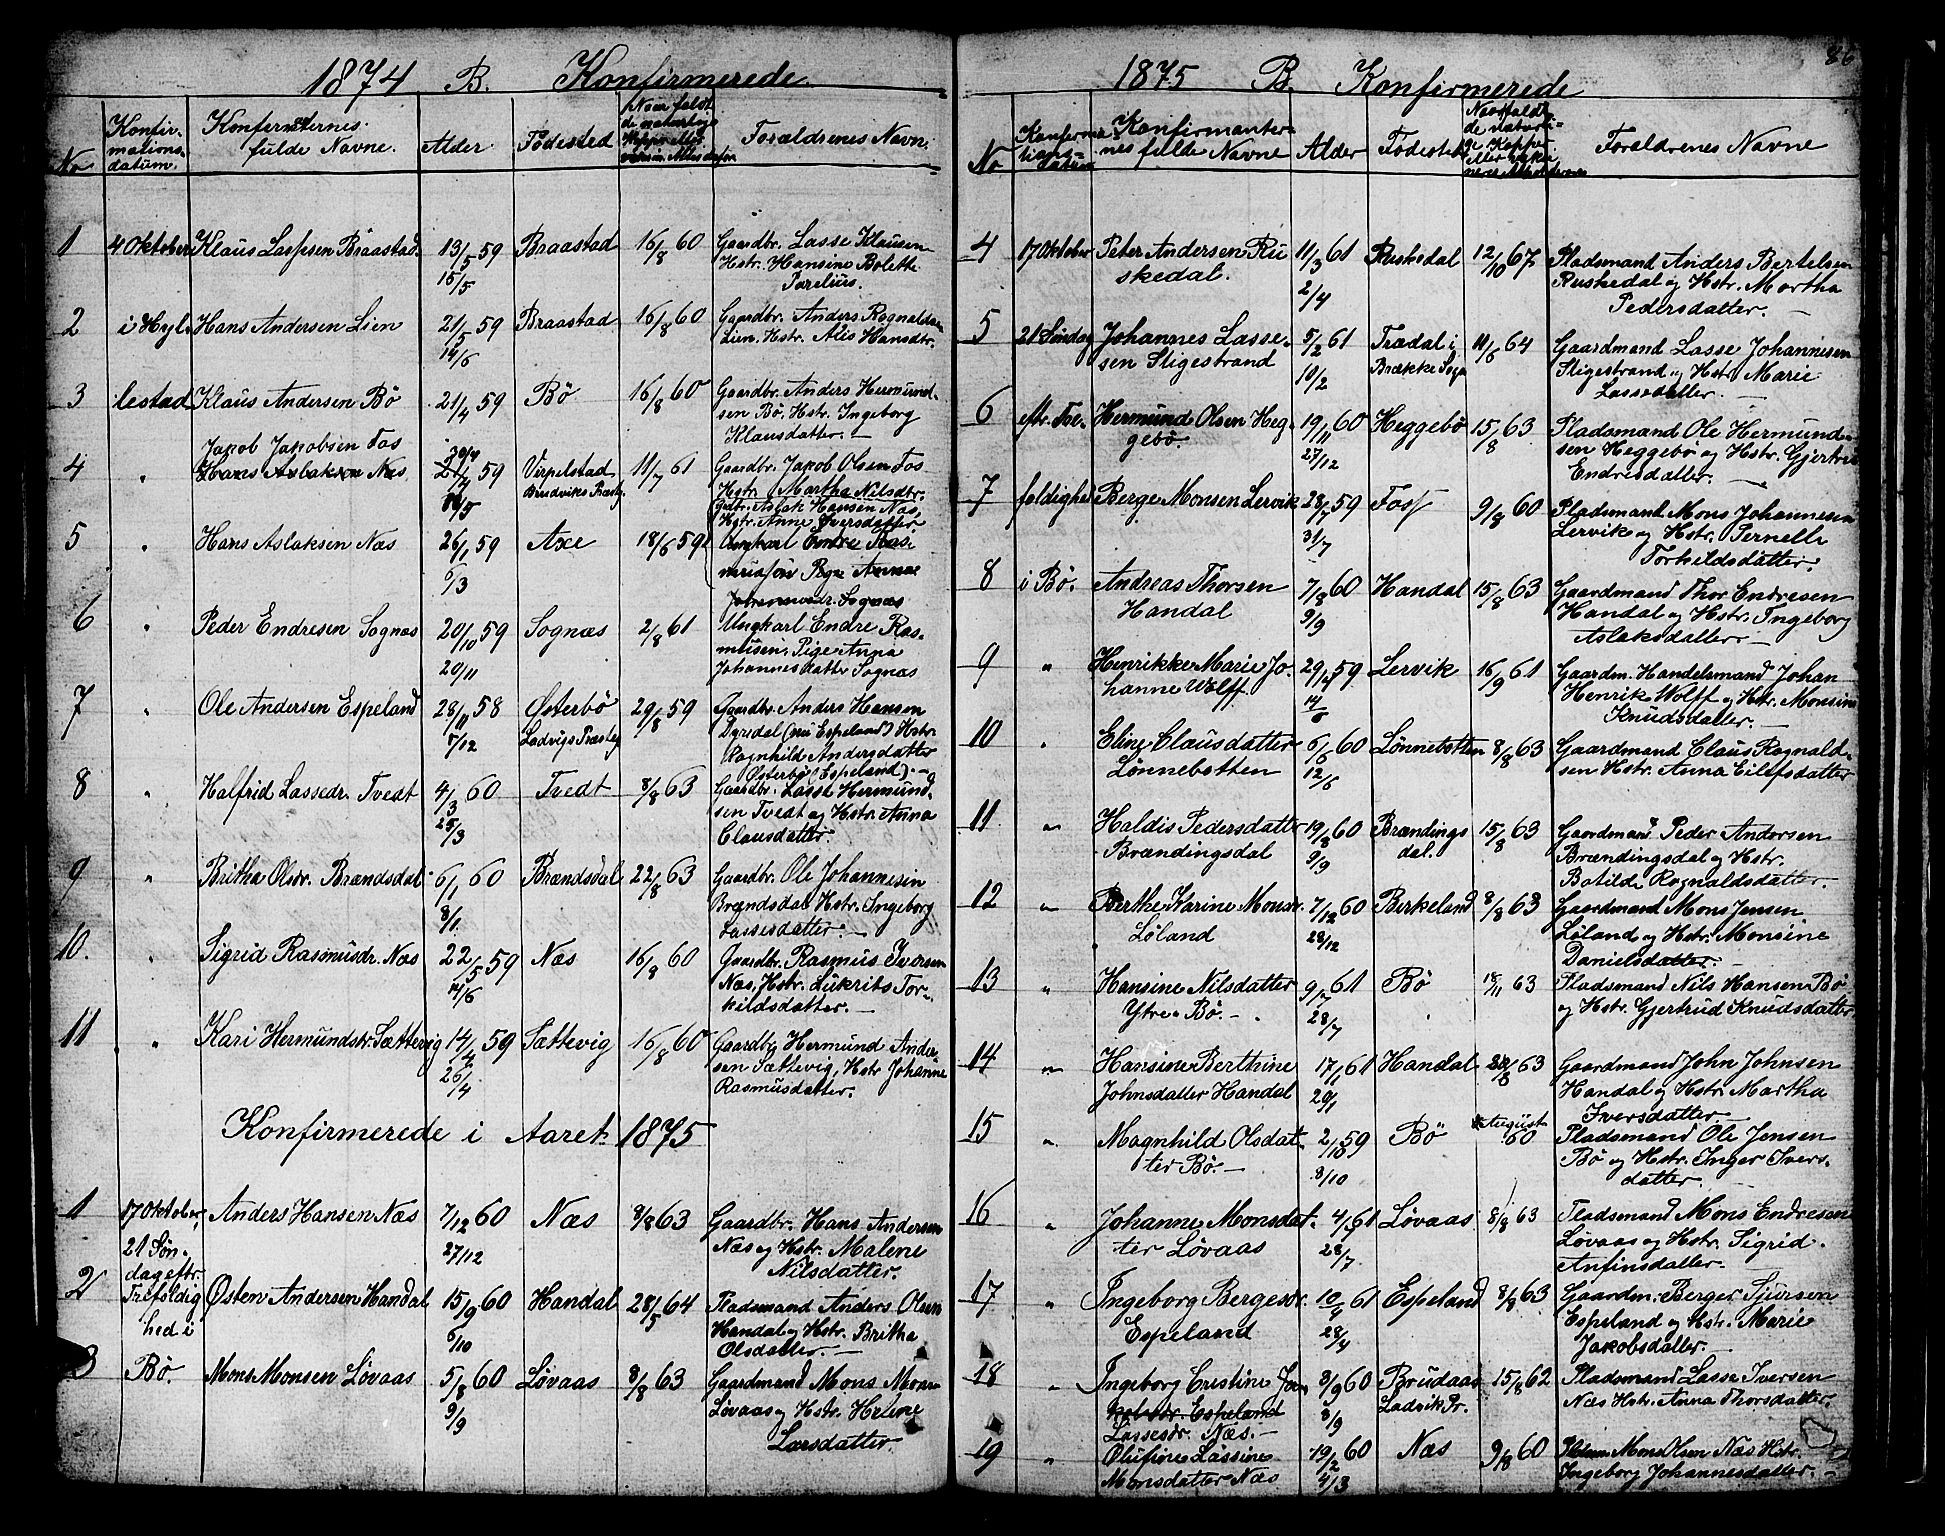 1874 B. Konfirmerede
No
Konfir-
mations-
datum.
Konfermaternes
fulde Navne.
Alder.
Födested
Naar faldt
de naturlige
Kopper eller
Forældrenes Navn.
1 4 Oktober Klaus Lassesen Bråastad. 13/5 59 15/5 Braastad 16/8 60 Gaardbr. Lasse Klausen
Hstr. Hansine Bolette
2 i Hyl- Hans Andersen Lien 21/5 59 14/6 Braastad 16/8 60 Gaardbr. Anders Rognaldsen
Lien. Hstr. Alis Hansdtr.
3 lestad Klaus Andersen Bø 21/4 59 Bø 16/8 60 Gaardbr. Anders Hermund-
sen Bø. Hstr. Ingeborg
Klausdatter. —
Jakob Jakobsen Fos
4 " Hans Aslaksen Næs 59 Virpelstad 11/7 61 Gaardbr. Jakob Olsen Fos
Brudviks Præstg.
Hstr. Martha Nilsdtr.
Gdbr. Aslak Hansen Næs,
Hstr. Anne Iversdatter
5 " Hans Aslaksen Næs 26/1 59 6/3 Axe 18/6 59 Ungkarl Endre Ras-
Pige Anna
Sognæs
6 " Peder Endresen Sognæs 20/10 59 20/11 Sognæs 2/8 61 Ungkarl Endre Ras-
musen. Pige Anna
Johannesdatter Sognæs
7 " Ole Andersen Espeland 28/11 58 7/12 Østerbö 29/8 59 Gaardbr. Anders Hansen
Ladvigs Præstg.
Dyrdal (nu Espeland) Hstr.
Ragnhild Andersdatter
Østerbø (Espeland). —
8 " Halfrid Lassedr. Tvedt 4/3 60 25/3 Tvedt 8/8 63 Gaardbr. Lasse Hermund-
sen Tvedt og Hstr. Anna
Clausdatter.
9 " Britha Olsdr. Brændsdal 6/1 60 8/1. Brændsdal 22/8 63 Gaardbr. Ole Johannesen
Brændsdal Hstr. Ingeborg
Lassesdatter. —
10. " Sigrid Rasmusdr. Næs 22/5 59 14/6 Næs 16/8 60 Gaardbr. Rasmus Iversen
Næs, Hstr. Lukrits Tor-
kildsdatter. —
11 " Kari Hermundstr. Sættevig 14/4 59 26/4 Sættevig 16/8 60 Gaardbr. Hermund Ander-
sen Sættevig, Hstr Johanne
Rasmusdatter.
Konfirmerede i Aaret 1875
1 17 Oktober, Anders Hansen Næs 7/12 60 27/12 Næs 8/8 63 Gaardbr. Hans Andersen
21 Søn-
Næs og Hstr. Malene
dag eftr.
Nilsdatter.
2 Trefoldig Østen Andersen Handal 15/9 60 6/10 Handal 28/5 64 Pladsmand Anders Olsen
hed i
Handal og Hstr. Britha
Olsdatter. —
3 Bø. Mons Monsen Løvaas 5/8 60 9/9 Løvaas 8/8 63 Gaardmand Mons Mons
Løvaas og Hstr. Helene
Larsdatter.
86
1875 B. Konfirmerede
No
Konferma-
tions-
datum
Konfirmanter-
nes fulde Navne
Alder
Fødested
Naar faldt
de naturli-
ge Kopper
eller
Forældrenes Navne
4 17 Oktober Peter Andersen Ru 11/3 61 2/4 Ruskedal 12/10 67 Pladsmand Anders Bertelsen
skedal.
Ruskedal og Hstr. Martha
Pedersdatter. —
5 21 Søndag Johannes Lasse- 5/2 61 10/2 Trædal i 11/6 64 Gaardmand Lasse Johannesen
sen Sligestrand
Brække Sogn
Sligestrand og Hstr. Marie
Lassedatter. —
6 eftr. Tre- Hermund Olsen Heg- 19/11 60 27/12 Heggebø 15/8 63 Pladsmand Ole Hermund-
gebø.
sen Heggebø og Hstr. Gjertru
Endresdatter. —
7 foldighed Berge Monsen Lervik 28/7 59 31/7 Foss 9/8 60 Pladsmand Mons Johannesen
Lervik og Hstr. Pernelle
Torkildsdatter.
8 i Bø. Andreas Thorsen 7/8 60 9/9 Handal 15/8 63 Gaardmand Thor Endresen
Handal
Handal og Hstr. Ingeborg
Aslaksdatter —
9 " Henrikke Marie Jo- 29/4 59 14/6 Lervik 16/9 61 Gaardm. Handelsmand Johan
hanne Wolff
Henrik Wolff og Hstr. Monsine
Knudsdatter. —
10 " Eline Clausdatter 6/6 60 12/6 Lønnebotten 8/8 63 Gaardmand Claus Rognald-
Lønnebotten
sen Hstr. Anna Eilifsdatter
11 " Haldis Pedersdatter 19/8 60 9/9 Brændings 15/8 63 Gaardmand Peder Andersen
Brændingsdal
dal.
Brændingsdal og Hstr.
Botilde Rognaldsdatter.
12 " Berthe Karine Monsdr. 7/12 60 28/12 Birkeland 8/8 63 Gaardmand Mons Jensen
Løland
Løland og Hstr. Monsine
Danielsdatter.
13 " Hansine Nilsdatter 9/7 61 28/7 Bø 18/11 63 Pladsmand Nils Hansen Bø
Ytre Bø. —
og Hstr. Gjertrud Knudsdatter
14 " Hansine Berthine 17/1 61 29/1 Handal 63 Gaardmand John Johnsen
Johnsdatter Handal
Handal og Hstr. Martha
Iversdatter
15 " Magnhild Olsdat- 2/10 59 8/10 Bø August 60 Pladsmand Ole Jensen
ter Bø. —
Bø og Hstr. Inger Ivers-
datter.
16 " Johanne Monsdat- 4/7 61 28/7 Løvaas 8/8 63 Pladsmand Mons Endresen
ter Løvaas
Løvaas og Hstr. Sigrid
Anfinsdatter. —
17 " Ingeborg Bergesdr. 61 28/4 Espeland 8/8 63 Gaardm. Berger Sjursen
Espeland
Espeland og Hstr. Marie
Jakobsdatter.
18 " Ingeborg Cristine 8/9 60 8/9 Brudaas 15/8 62 Pladsmand Lasse Iversen
Espeland
Ladvik Pr.
Næs Hstr. Anna Thorsdatter.
Lassesdr. Næs. —
19 " Olufine Lassine 19/2 60 4/3 Næs 9/8 60 Mons Olsen Næs Hstr.
Monsdatter Næs
Ingeborg Johannesdatter. —